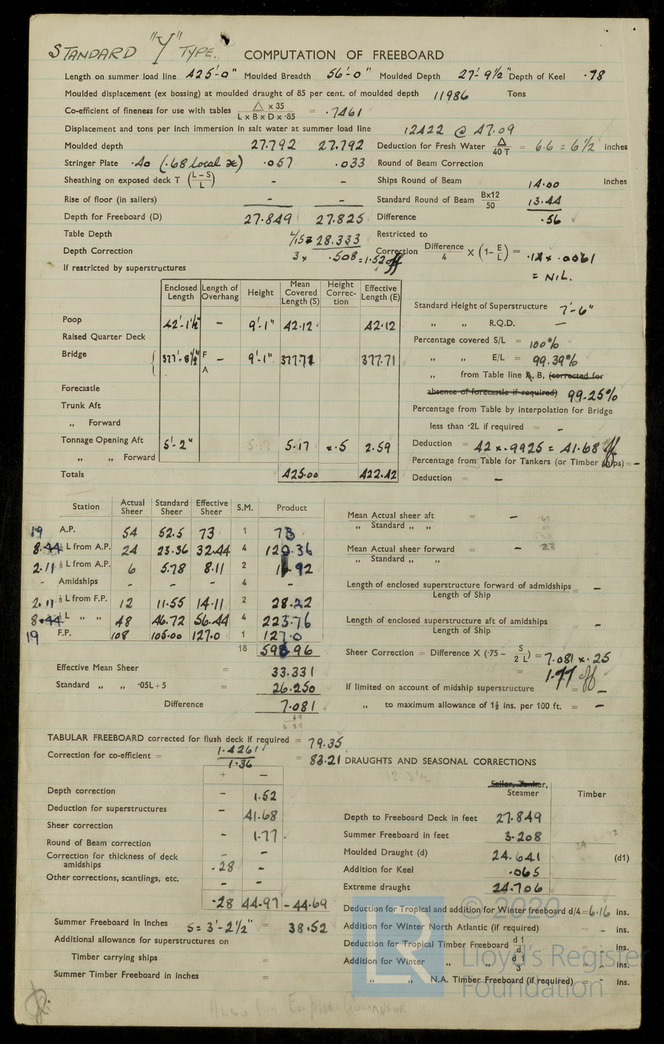 STANDARD "Y" TYPE. COMPUTATION OF FREEBOARD
Length on summer load line 425'-0" Moulded Breadth 56'-0" Moulded Depth 27'-9½" Depth of Keel .78
Moulded displacement (ex bossing) at moulded draught of 85 per cent. of moulded depth 11986 Tons
Co-efficient of fineness for use with tables △ x 35 / L x B x D x ·85 = .7461
Displacement and tons per inch immersion in salt water at summer load line 12422 @ 47.09
Moulded depth 27.792 27.792 Deduction for Fresh Water △ / 40 T = 6.6 = 6½" inches
Stringer Plate .40 (.68 local) .057 .033 Round of Beam Correction
Sheathing on exposed deck T (L–S / L) - - Ships Round of Beam 14.00 inches
Rise of floor (in sailers) - - Standard Round of Beam Bx12 / 50 13.44
Depth for Freeboard (D) 27.849 27.825 Difference .56
Table Depth L/15 = 28.333 Restricted to
Depth Correction 3 x .508 = 1.52 off Correction Difference / 4 x (1– E / L) = .14 x .0061
If restricted by superstructures = NIL.
Enclosed Length Length of Overhang Height Mean Covered Length (S) Height Correction Effective Length (E)
Standard Height of Superstructure 7'-6"
Poop 42'-1½" - 9'-1" 42.12 42.12 " " R.Q.D. —
Raised Quarter Deck Percentage covered S/L = 100%
Bridge 377'-8½" F - 9'-1" 377.71 377.71 " " E/L = 99.39%
A " from Table line A, B, (corrected for
Forecastle absence of forecastle if required) 99.25%
Trunk Aft Percentage from Table by interpolation for Bridge
" Forward less than ·2L if required = -
Tonnage Opening Aft 5'-2" 5.17 x.5 2.59 Deduction = 42 x .9925 = 41.68 off
" " Forward Percentage from Table for Tankers (or Timber Ships) = -
Totals 425.00 422.42 Deduction = -
Station Actual Sheer Standard Sheer Effective Sheer S.M. Product
19 A.P. 54 52.5 73 1 73
8.44 L from A.P. 24 23.36 32.44 4 120.36
2.11 L from A.P. 6 5.78 8.11 2 11.92
- Amidships - - - 4 -
2.11 L from F.P. 12 11.55 14.11 2 28.22
8.44 L " " 48 46.72 56.44 4 223.76
19 F.P. 108 105.00 127.0 1 127.0
18 596.96
Effective Mean Sheer = 33.331
Standard " " ·05L+5 = 26.250
Difference 7.081
Mean Actual sheer aft = -
" Standard " "
Mean Actual sheer forward = -
" Standard " "
Length of enclosed superstructure forward of admidships / Length of Ship = -
Length of enclosed superstructure aft of amidships / Length of Ship = -
Sheer Correction = Difference X (·75 – S / 2 L) = 7.081 x .25
= 1.77 off
If limited on account of midship superstructure = -
" to maximum allowance of 1½ ins. per 100 ft. = -
TABULAR FREEBOARD corrected for flush deck if required = 79.35
Correction for co-efficient = 1.4261 / 1.36 = 83.21
+ −
Depth correction - 1.52
Deduction for superstructures - 41.68
Sheer correction - 1.77
Round of Beam correction - -
Correction for thickness of deck amidships .28 -
Other corrections, scantlings, etc. - -
.28 44.97 - 44.69
Summer Freeboard in Inches S = 3'-2½" = 38.52
Additional allowance for superstructures on
Timber carrying ships =
Summer Timber Freeboard in inches =
DRAUGHTS AND SEASONAL CORRECTIONS
Sailer, Tanker, Steamer Timber
Depth to Freeboard Deck in feet 27.849
Summer Freeboard in feet 3.208
Moulded Draught (d) 24.641 (d1)
Addition for Keel .065
Extreme draught 24.706
Deduction for Tropical and addition for Winter freeboard d/4 = 6.16 ins.
Addition for Winter North Atlantic (if required) = - ins.
Deduction for Tropical Timber Freeboard d1 / 4 = - ins.
Addition for Winter " " d1 / 3 = - ins.
" " N.A. Timber Freeboard (if required) = - ins.
© 2020
LR
Lloyd's Register
Foundation
ALSO FOR EMPIRE GOVERNOR